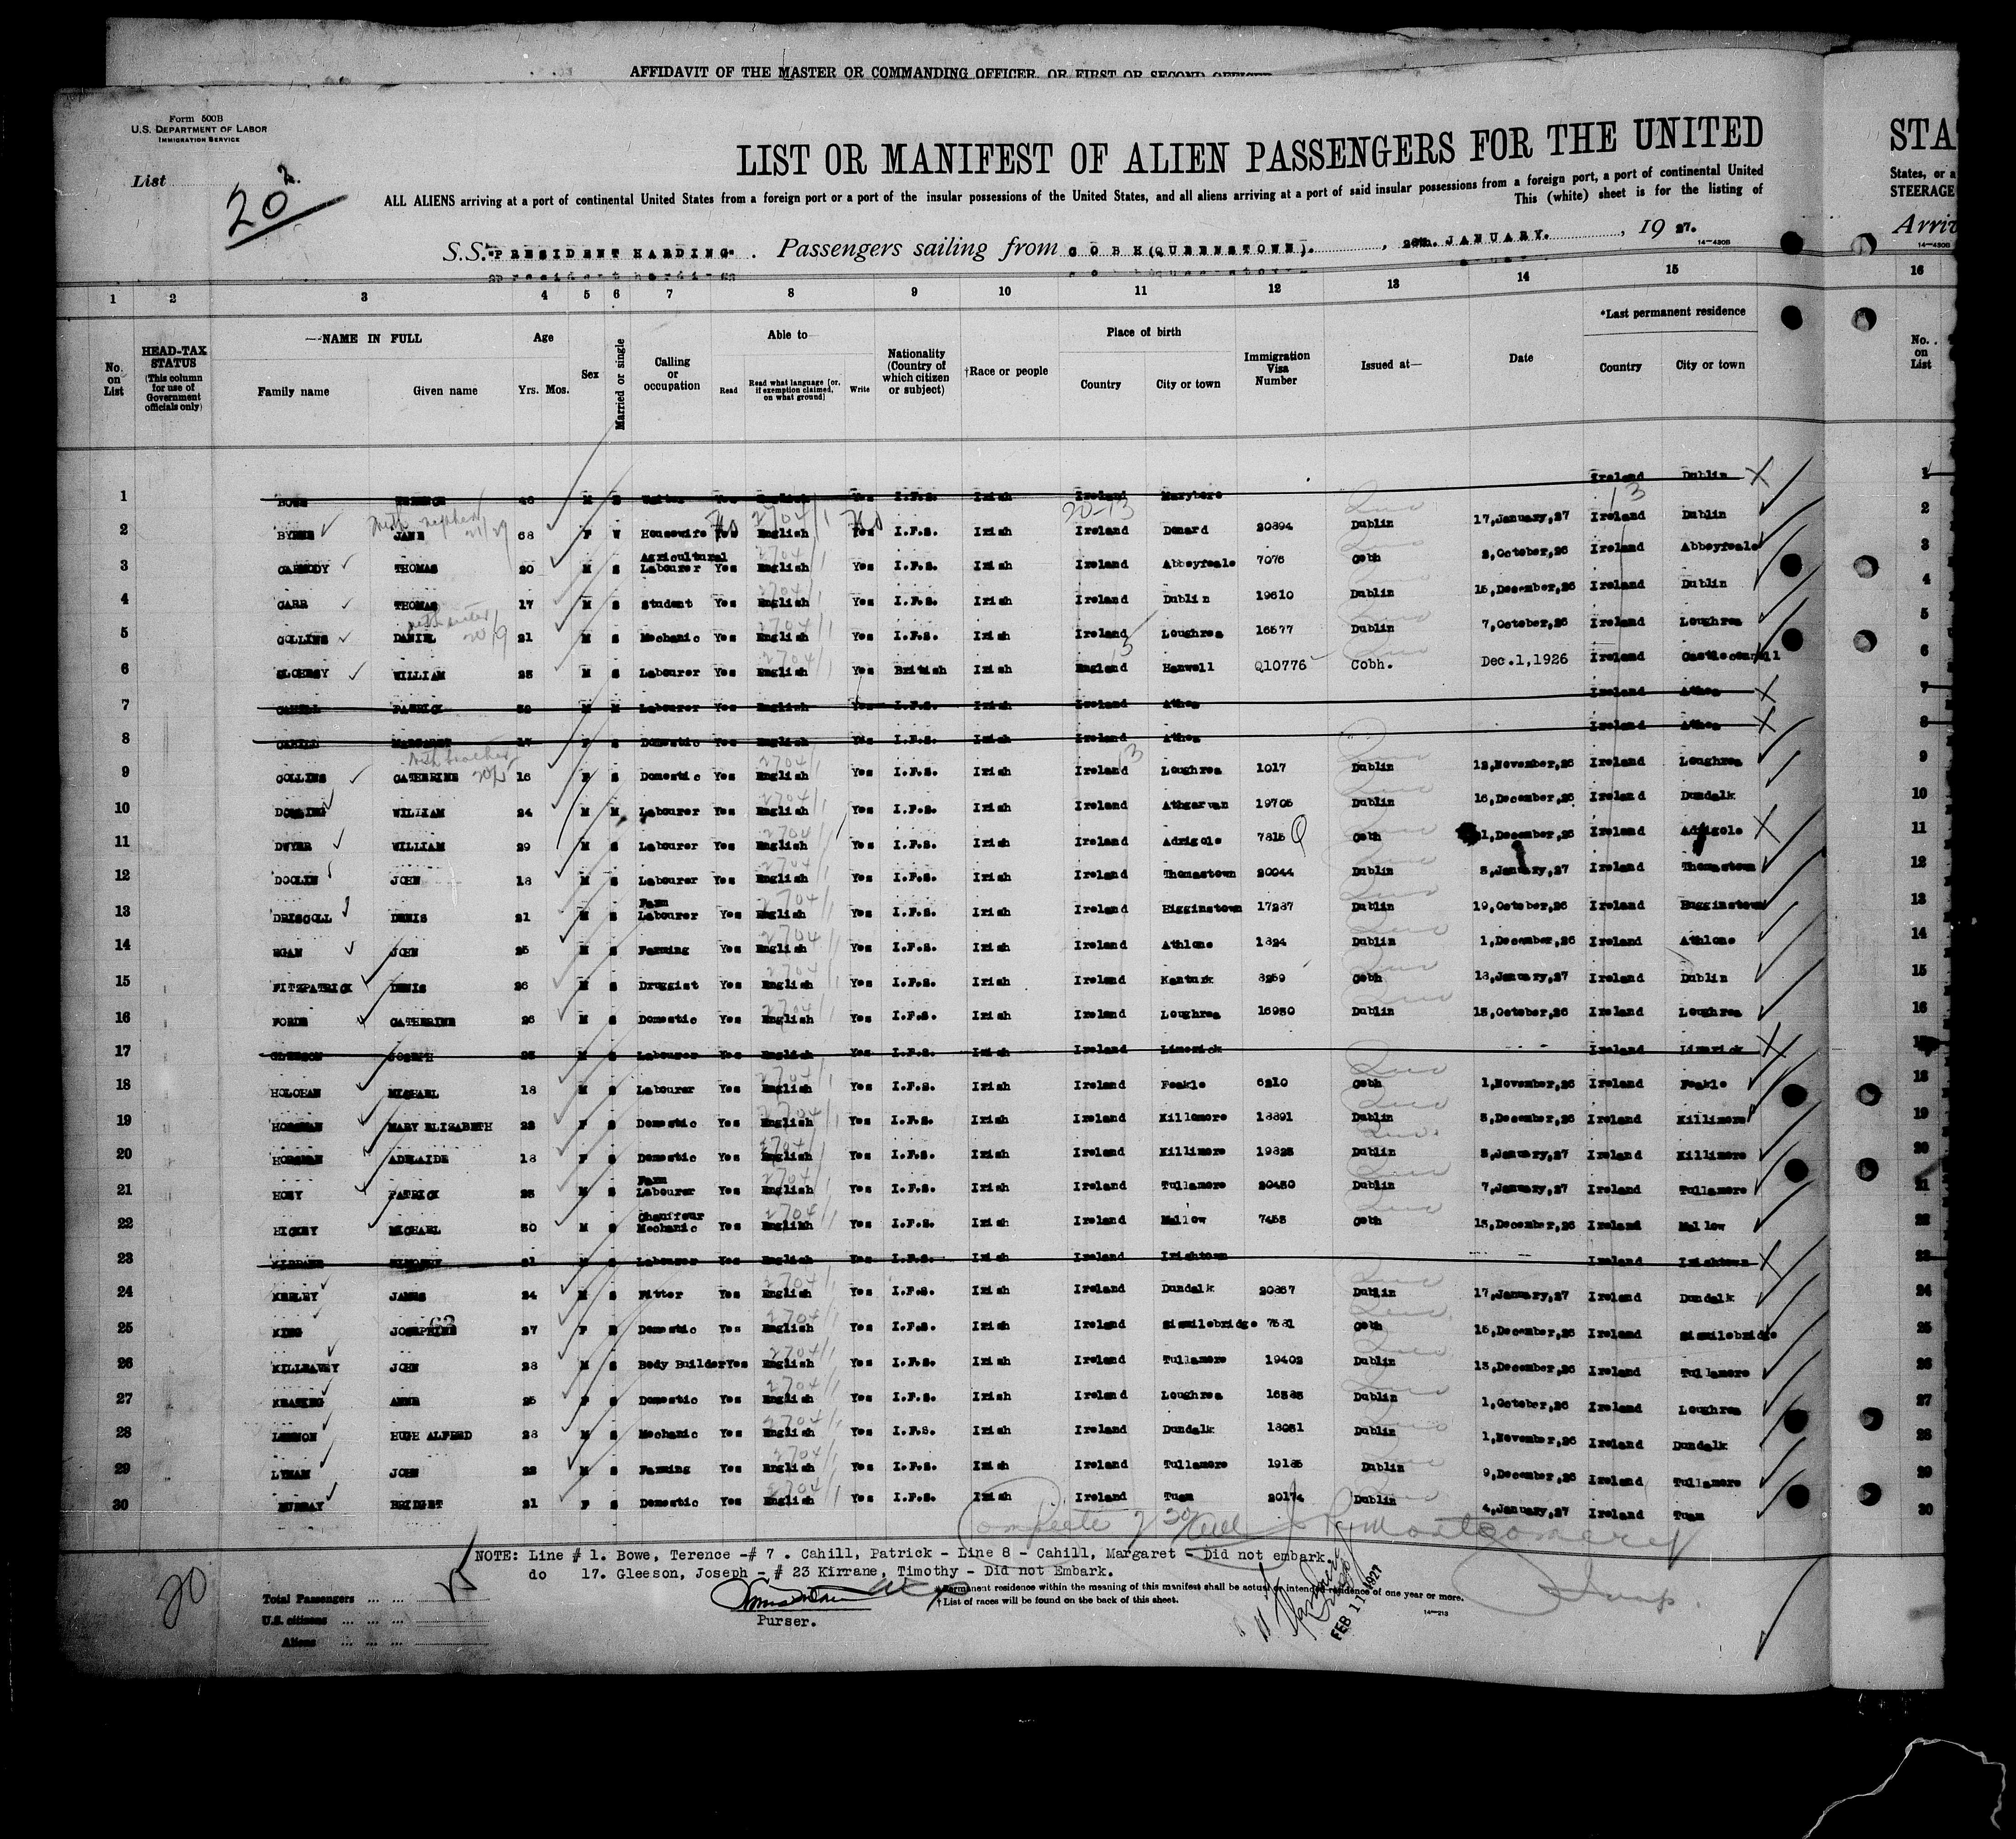 AFFIDAVIT OF THE MASTER OR COMMANDING OFFICER, OR FIRST OR SECOND OFFICER
Form 500B
U.S. DEPARTMENT OF LABOR
IMMIGRATION SERVICE
List
20
LIST OR MANIFEST OF ALIEN PASSENGERS FOR THE UNITED
STA
ALL ALIENS arriving at a port of continental United States from a foreign port or a port of the insular possessions of the United States, and all aliens arriving at a port of said insular possessions from a foreign port, a port of continental United
States, or a
This (white) sheet is for the listing of
STEERAGE
S.S. "PRESIDENT HARDING". Passengers sailing from COBH (QUEENSTOWN)., JANUARY., 1927.
Arriv
14-430B
14-430B
1 2 3 4 5 6 7 8 9 10 11 12 13 14 15 16
No. on List
HEAD-TAX STATUS (This column for use of Government officials only)
NAME IN FULL
Family name Given name
Age
Yrs. Mos.
Sex
Married or single
Calling or occupation
Able to
Read Read what language [or, if exemption claimed, on what ground] Write
Nationality (Country of which citizen or subject)
†Race or people
Place of birth
Country City or town
Immigration Visa Number
Issued at—
Date
*Last permanent residence
Country City or town
No. on List
1 BOWE TERENCE 46 M S Yes English Yes I.F.S. Irish Ireland Maryboro Ireland Dublin 1
2 BYRNE JANE 68 F W Housewife Yes English Yes I.F.S. Irish Ireland Donard 20894 Dublin 17,January,27 Ireland Dublin 2
3 CARMODY THOMAS 20 M S Agricultural Labourer Yes English Yes I.F.S. Irish Ireland Abbeyfeale 7076 Cobh 2,October,26 Ireland Abbeyfeale 3
4 CARR THOMAS 17 M S Student Yes English Yes I.F.S. Irish Ireland Dublin 19610 Dublin 15,December,26 Ireland Dublin 4
5 COLLINS DANIEL 21 M S Mechanic Yes English Yes I.F.S. Irish Ireland Loughrea 16577 Dublin 7,October,26 Ireland Loughrea 5
6 CLOHESY WILLIAM 25 M S Labourer Yes English Yes British Irish England Hanwell Q10776 Cobh. Dec.1,1926 Ireland Castleconnell 6
7 CAHILL PATRICK M M Labourer Yes English Yes I.F.S. Irish Ireland Athea Ireland Athea 7
8 CAHILL MARGARET 17 F S Domestic Yes English Yes I.F.S. Irish Ireland Athea Ireland Athea 8
9 COLLINS CATHERINE 16 F S Domestic Yes English Yes I.F.S. Irish Ireland Loughrea 1017 Dublin 12,November,26 Ireland Loughrea 9
10 DOWLING WILLIAM 24 M M Labourer Yes English Yes I.F.S. Irish Ireland Athgarvan 19705 Dublin 16,December,26 Ireland Dundalk 10
11 DWYER WILLIAM 29 M S Labourer Yes English Yes I.F.S. Irish Ireland Adrigole 7315 Cobh 1,December,26 Ireland Adrigole 11
12 DOOLIN JOHN 18 M S Labourer Yes English Yes I.F.S. Irish Ireland Thomastown 20044 Dublin 3,January,27 Ireland Thomastown 12
13 DRISCOLL DENIS 21 M S Farm Labourer Yes English Yes I.F.S. Irish Ireland Higginstown 17237 Dublin 19,October,26 Ireland Hugginstown 13
14 EGAN JOHN 25 M S Farming Yes English Yes I.F.S. Irish Ireland Athlone 1324 Dublin 1,December,26 Ireland Athlone 14
15 FITZPATRICK DENIS 26 M S Druggist Yes English Yes I.F.S. Irish Ireland Kanturk 8259 Cobh 13,January,27 Ireland Dublin 15
16 FORDE CATHERINE 26 M S Domestic Yes English Yes I.F.S. Irish Ireland Loughrea 16950 Dublin 15,October,26 Ireland Loughrea 16
17 GLEESON JOSEPH 25 M S Labourer Yes English Yes I.F.S. Irish Ireland Limerick Ireland Limerick
18 HOLOHAN MICHAEL 18 M S Labourer Yes English Yes I.F.S. Irish Ireland Feakle 6210 Cobh 1,November,26 Ireland Feakle 18
19 MARY ELIZABETH 22 F S Domestic Yes English Yes I.F.S. Irish Ireland Killemore 18891 Dublin 3,December,26 Ireland Killimore 19
20 ADELAIDE 18 F S Domestic Yes English Yes I.F.S. Irish Ireland Killimore 19825 Dublin 3,January,27 Ireland Killimore 20
21 HOEY PATRICK 25 M S Farm Labourer Yes English Yes I.F.S. Irish Ireland Tullamore 20450 Dublin 7,January,27 Ireland Tullamore 21
22 HICKEY MICHAEL 30 M S Chauffeur Mechanic Yes English Yes I.F.S. Irish Ireland Mallow 7455 Cobh 15,December,26 Ireland Mallow 22
23 KIRRANE TIMOTHY 21 M S Labourer Yes English Yes I.F.S. Irish Ireland Irishtown Ireland Irishtown 23
24 KEELEY JAMES 24 M S Fitter Yes English Yes I.F.S. Irish Ireland Dundalk 20857 Dublin 17,January,27 Ireland Dundalk 24
25 KING JOSEPHINE 27 F S Domestic Yes English Yes I.F.S. Irish Ireland Sixmilebridge 7531 Cobh 15,December,26 Ireland Sixmilebridge 25
26 KILLEAVEY JOHN 28 M S Body Builder Yes English Yes I.F.S. Irish Ireland Tullamore 19402 Dublin 13,December,26 Ireland Tullamore 26
27 KEATING ANNE 25 F S Domestic Yes English Yes I.F.S. Irish Ireland Loughrea 16385 Dublin 1,October,26 Ireland Loughrea 27
28 LENNON HUGH ALFRED 28 M S Mechanic Yes English Yes I.F.S. Irish Ireland Dundalk 18051 Dublin 1,November,26 Ireland Dundalk 28
29 LYNAM JOHN 22 M S Farming Yes English Yes I.F.S. Irish Ireland Tullamore 19185 Dublin 9,December,26 Ireland Tullamore 29
30 MURRAY BRIDGET 21 F S Domestic Yes English Yes I.F.S. Irish Ireland Tuam 20174 Dublin 4,January,27 Ireland Tuam 30
NOTE: Line # 1. Bowe, Terence -# 7 . Cahill, Patrick - Line 8 - Cahill, Margaret - Did not embark.
do 17. Gleeson, Joseph - # 23 Kirrane, Timothy - Did not Embark.
20
Total Passengers ... ...
U.S. citizens ... ... ...
Aliens ... ... ...
Purser.
*Permanent residence within the meaning of this manifest shall be actual or intended residence of one year or more.
†List of races will be found on the back of this sheet.
14-213
FEB 11 1927